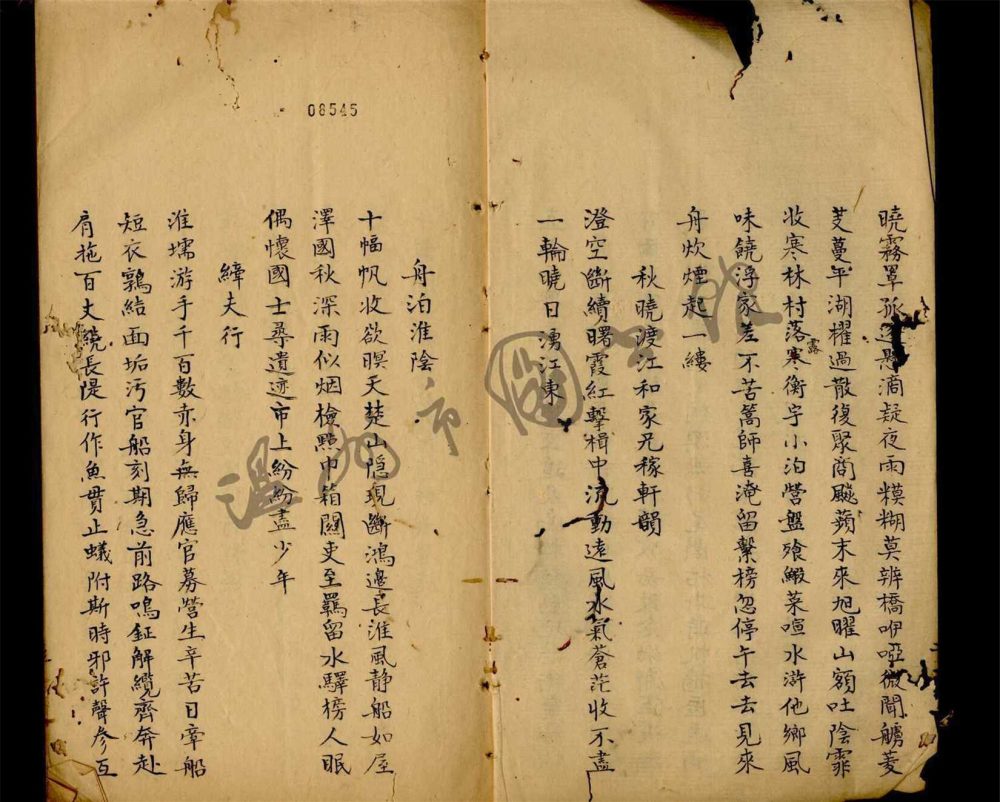 曉霧罩孤逢懸滴疑夜雨糢糊莫辨橋咿啞微聞艣菱
芟蔓平湖櫂過散復聚商颷蘋末來旭曜山額吐陰霏
收寒林村落寒露衡宇小泊營盤飱鰕菜喧水滸他鄉風
味饒浮家差不苦篙師喜淹留繫榜忽停午去去見來
舟炊煙起一縷
秋曉渡江和家兄稼軒韻
澄空斷續曙霞紅擊楫中流動遠風水氣蒼茫收不盡
一輪曉日湧江東
08545
舟泊淮陰
十幅帆收欲暝天楚山隱現斷鴻邊長淮風静船如屋
澤國秋深雨似烟檢點巾箱關吏至羈留水驛榜人眠
偶懷國士尋遺迹市上紛紛盡少年
縴夫行
淮壖游手千百數亦身無歸應官募營生辛苦日牽船
短衣鶉結面垢汚官船刻期急前路鳴鉦解纜齊奔赴
肩拖百丈繞長隄行作魚貫止蟻附斯時邪許聲參互
温州市圖